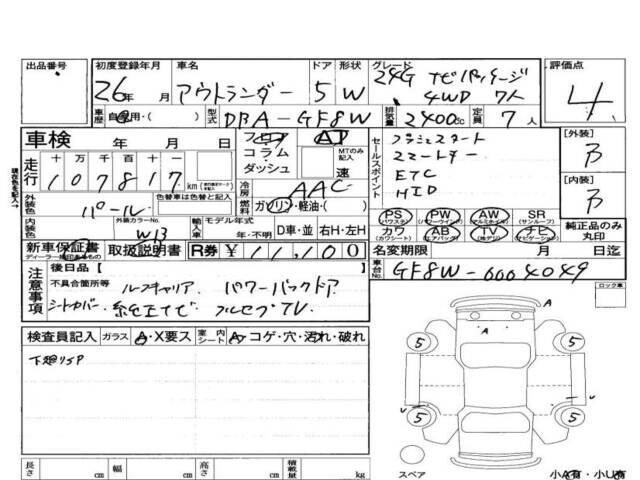 出品番号 初度登録年月 車名 ドア 形状 グレード 評価点
26年 月 アウトランダー 5 W 24G ナビパッケージ
4WD 7人 4
車歴 自家用・( ) 型式 DBA-GF8W 排気量 2400cc 定員 7人
車検 年 月 日 フロア AT
コラム・ダッシュ MTのみ記入 速
セールスポイント
走行 十万千百十一
107817 km
現在色を記入→
冷房 AAC
燃料 ガソリン・軽油・( )
外装色 パール 色替車は色替と記入
内装色 外装カラーNo. W13
モデル年式 年・不明
輸入車 D車・並 右H・左H
スマートキー
ETC
HID
[外装]
[内装]
PS (パワステ) PW (パワーウインドウ) AW (アルミホイル) SR (サンルーフ)
カワ (カワシート) AB (エアバック) TV (地デジ) ナビ (ナビゲーション)
純正品のみ丸印
新車保証書 ディーラー印があるもの 取扱説明書 R券 ¥11,100
名変期限 月 日迄
車台No. GF8W-0004049
注意事項 後日品[ ]
不具合箇所等 ルーフキャリア パワーバックドア
シートカバー 純正ナビ フルセグTV
ロック車
検査員記入 ガラス A・X要ス 室内シート A・コゲ・穴・汚れ・破れ
下廻りSP
A
A
5 5
5 5
スペア
小A有・小U有
長さ cm 幅 cm 高さ cm 積載量 kg